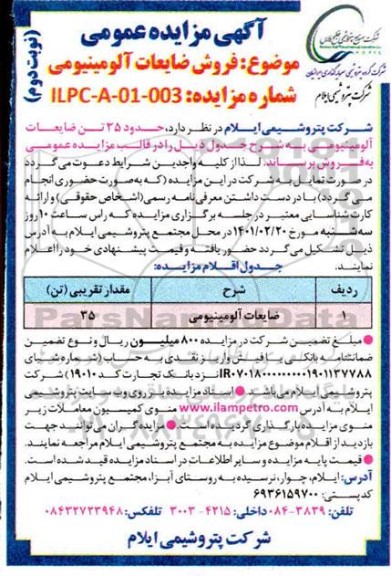 آگهی مزایده عمومی
(نوبت دوم)
موضوع: فروش ضایعات آلومینیومی
شماره مزایده: ILPC-A-01-003
شرکت پتروشیمی ایلام
شرکت پتروشیمی ایلام در نظر دارد، حدود ۳۵ تن ضایعات
آلومینیومی را به شرح جدول ذیل را در قالب مزایده عمومی
به فروش برساند. لذا از کلیه واجدین شرایط دعوت می گردد
در صورت تمایل به شرکت در این مزایده (که به صورت حضوری انجام
می گردد) با در دست داشتن معرفی نامه رسمی (اشخاص حقوقی) و ارائه
کارت شناسایی معتبر در جلسه برگزاری مزایده که راس ساعت ۱۰ روز
سه شنبه مورخ ۱۴۰۱/۰۲/۲۰ در محل مجتمع پتروشیمی ایلام به آدرس
ذیل تشکیل می گردد حضور یافته و قیمت پیشنهادی خود را اعلام
نمایند.
جدول اقلام مزایده:
ردیف شرح مقدار تقریبی (تن)
۱ ضایعات آلومینیومی ۳۵
● مبلغ تضمین شرکت در مزایده ۸۰۰ میلیون ریال و نوع تضمین
ضمانتنامه بانکی یا رسید فیش واریز نقدی به حساب (شماره شبای
نزد بانک تجارت کد ۱۹۰۱۰) شرکت
پتروشیمی ایلام می باشد. ● اسناد مزایده بر روی وب سایت پتروشیمی
ایلام به آدرس www.ilampetro.com منوی کمیسیون معاملات زیر
منوی مزایده بارگذاری گردیده است. ● مزایده گران می توانند جهت
بازدید از اقلام موضوع مزایده به مجتمع پتروشیمی ایلام مراجعه نمایند.
● قیمت پایه مزایده و سایر اطلاعات در اسناد مزایده قید شده است.
آدرس: ایلام، چوار، نرسیده به روستای آبزا، مجتمع پتروشیمی ایلام
کدپستی: ۶۹۳۶۱۵۹۷۰۰
تلفن: ۳۸۳۹-۰۸۴ داخلی: ۴۲۱۵ - ۳۰۰۳ تلفکس: ۰۸۴۳۲۷۲۳۹۴۸
شرکت پتروشیمی ایلام